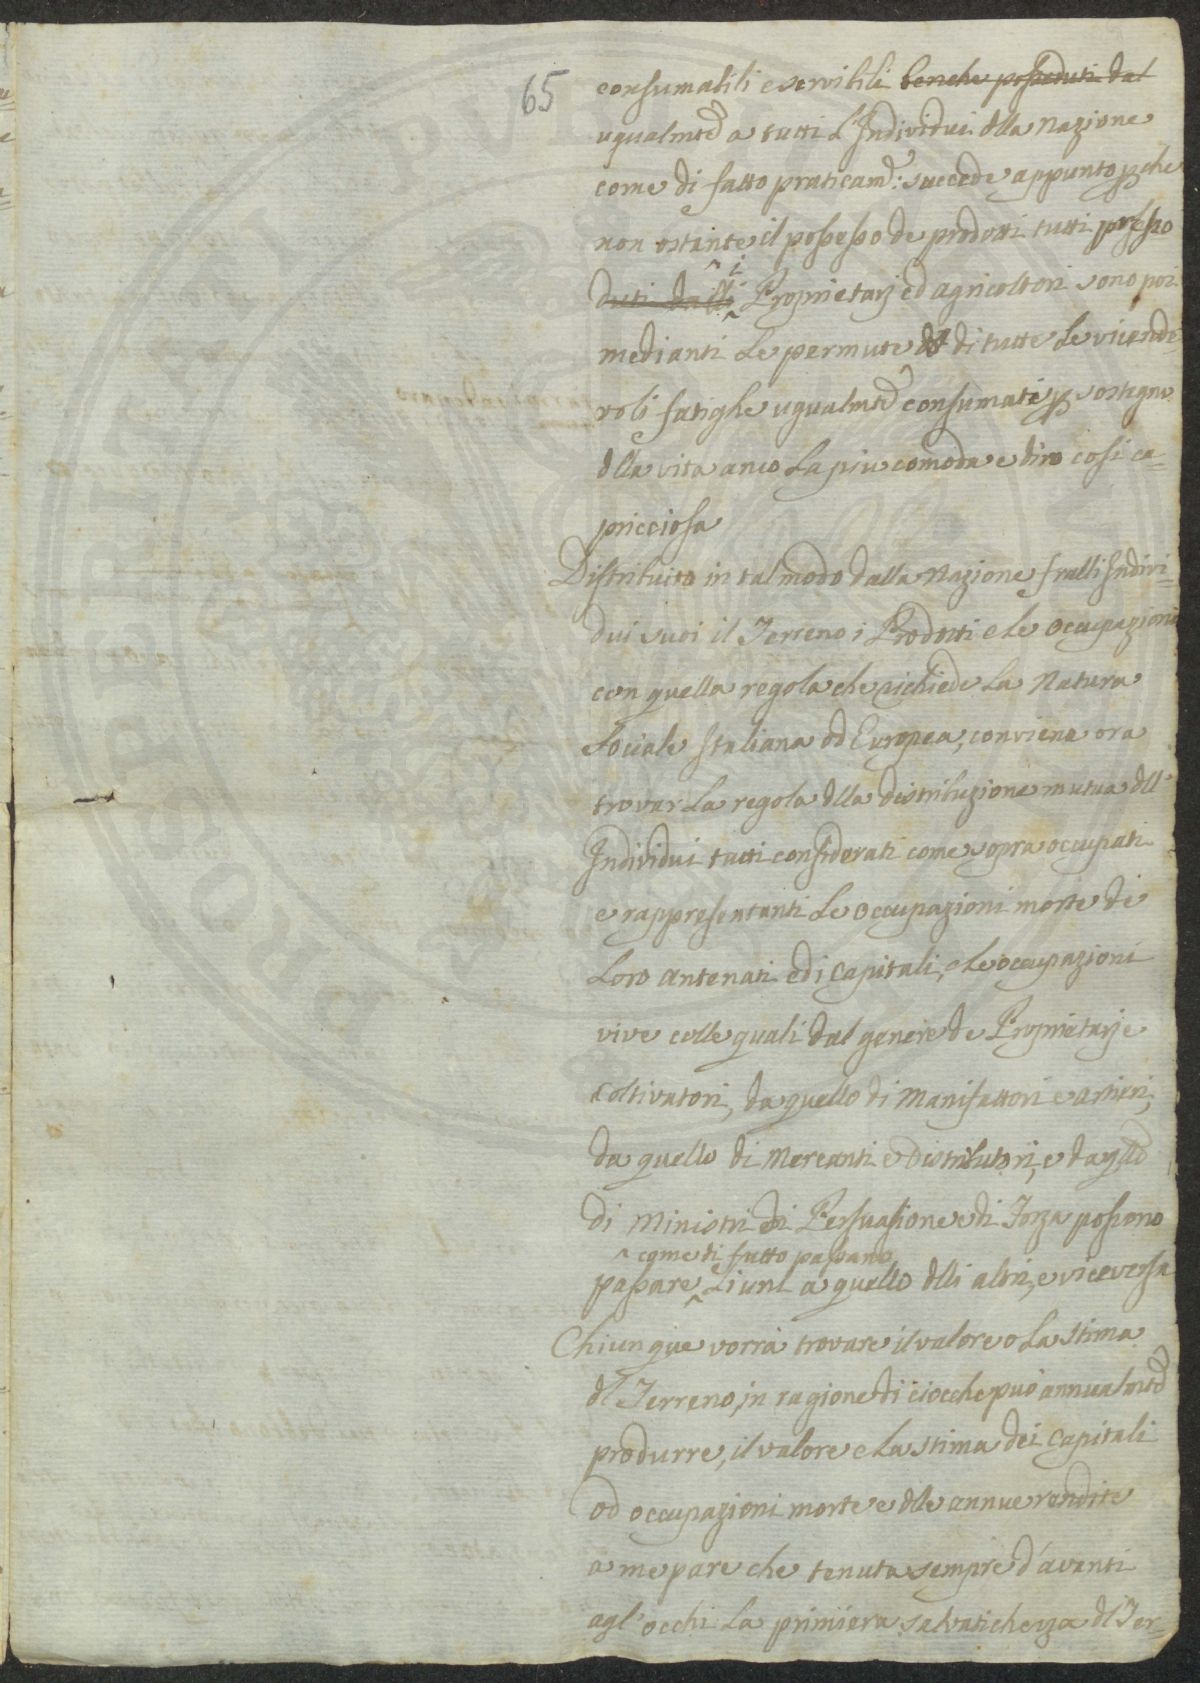 65
consumabili e servibili benche posseduti dal
ugualmte a tutti l'Individui dlla Nazione
come di fatto praticamte: succede appunto pche
non ostante il possesso de prodotti tutti presso
duti dalli i Proprietarj ed agricoltori sono poi
medianti le permute di tutte le vicende-
voli fatighe ugualmte consumati p sostegno
dlla vita anco la piu comoda e diro cosi ca-
pricciosa
Distribuito in tal modo dalla Nazione fralli Indivi-
dui suoi il Terreno i Prodotti e le occupazioni
con quella regola che richiede la Natura
sociale Italiana od Europea, conviene ora
trovar la regola dlla distribuzione mutua dll'
Individui tutti considerati come sopra occupati
e rappresentanti le occupazioni morte de
loro antenati ed i capitali, e le occupazioni
vive colle quali dal genere de Proprietarj e
coltivatori, da quello di Manifattori e artieri,
da quello di Mercanti e Distributori, e da qllo
di Ministri di Persuasione e di Forza possono
come di fatto passano
passare li uni a quello dlli altri, e viceversa
Chiunque vorrà trovare il valore o la stima
dl Terreno, in ragione di ciocche può annualmte
produrre, il valore e la stima dei capitali
od occupazioni morte e dlle annue rendite
a me pare che tenuta sempre d'avanti
agl'occhi la primiera salvatichezza dl Ter-